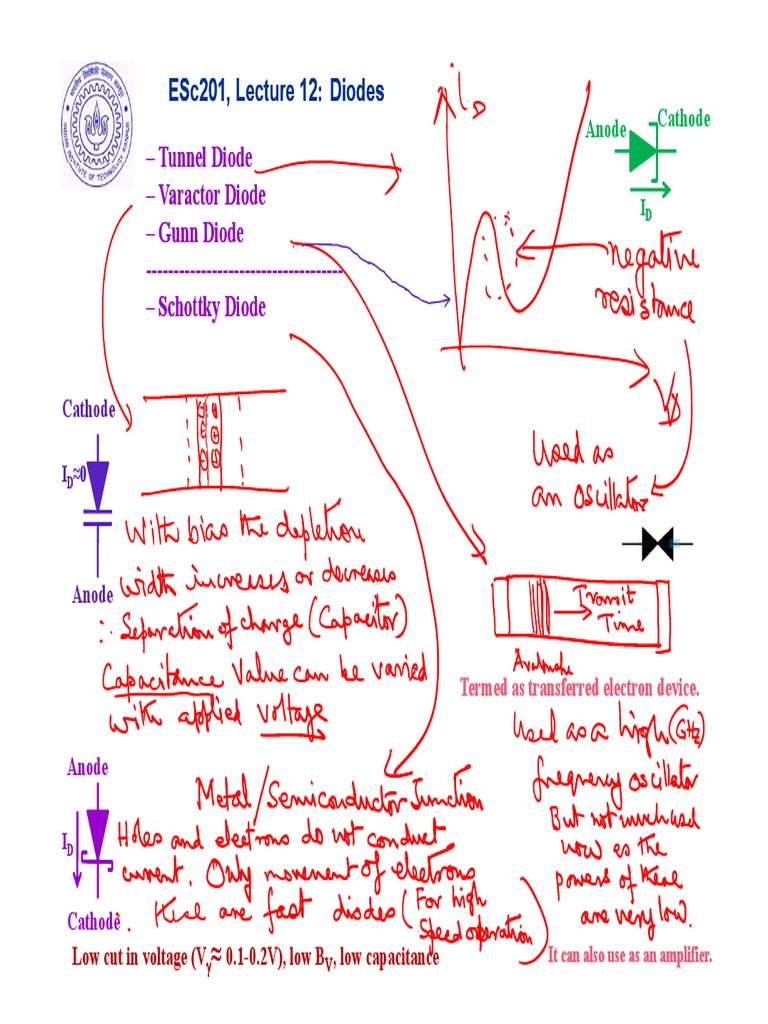 ESc201, Lecture 12: Diodes
– Tunnel Diode
– Varactor Diode
– Gunn Diode
------------------------------------
– Schottky Diode
i_D
Anode
Cathode
I_D
negative
resistance
V_D
Used as
an oscillator
Cathode
I_D≈0
Anode
With bias the depletion
width increases or decreases
∴ Separation of charge (Capacitor)
Capacitance Value can be varied
with applied voltage
Transit
Time
Avalanche
Termed as transferred electron device.
Used as a high (GHz)
frequency oscillator
But not much used
now as the
powers of these
are very low.
It can also use as an amplifier.
Anode
I_D
Cathode
Metal/Semiconductor Junction
Holes and electrons do not conduct
current. Only movement of electrons
. These are fast diodes (For high
Speed operation)
Low cut in voltage (V_γ ≈ 0.1-0.2V), low B_V, low capacitance
INDIAN INSTITUTE OF TECHNOLOGY KANPUR